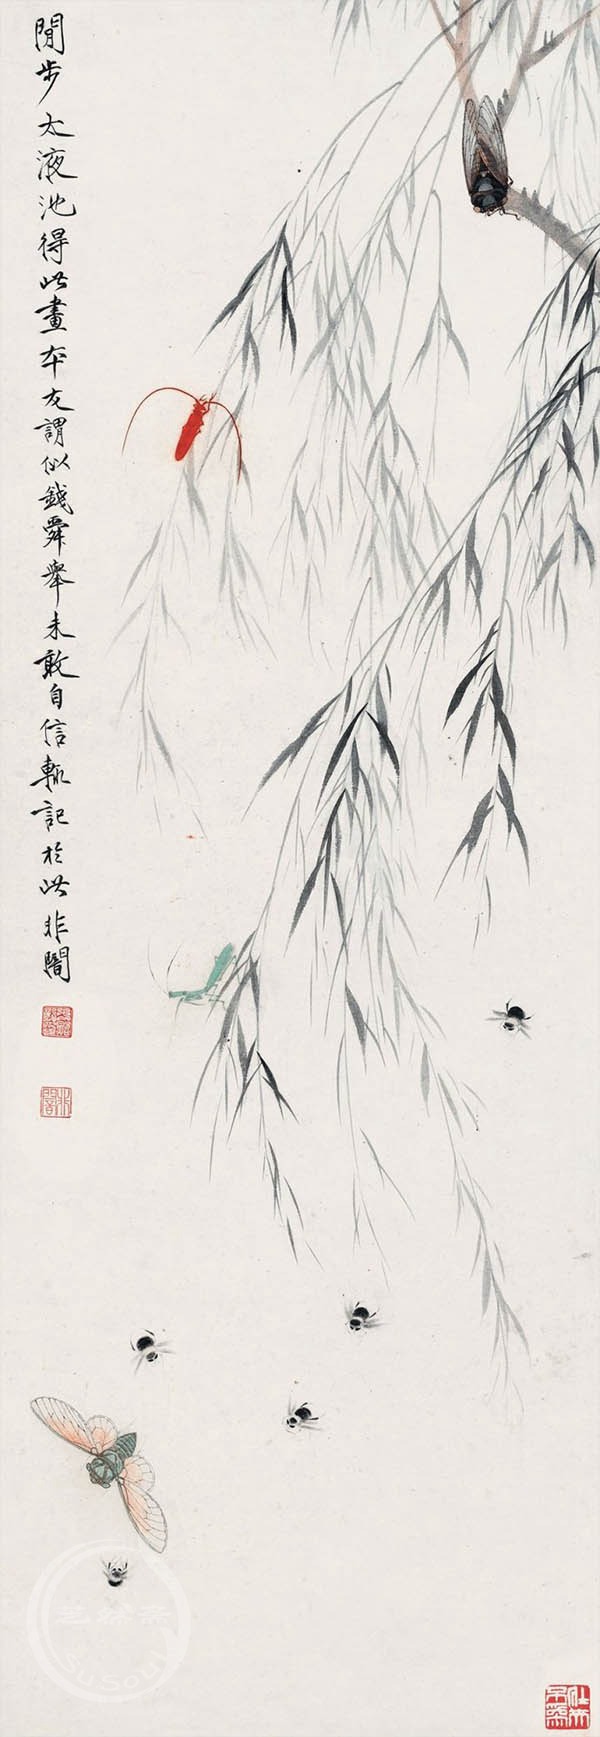 閒步太液池得此畫本友謂似錢舜舉未敢自信輒記於此非闇
非闇
SuSoul